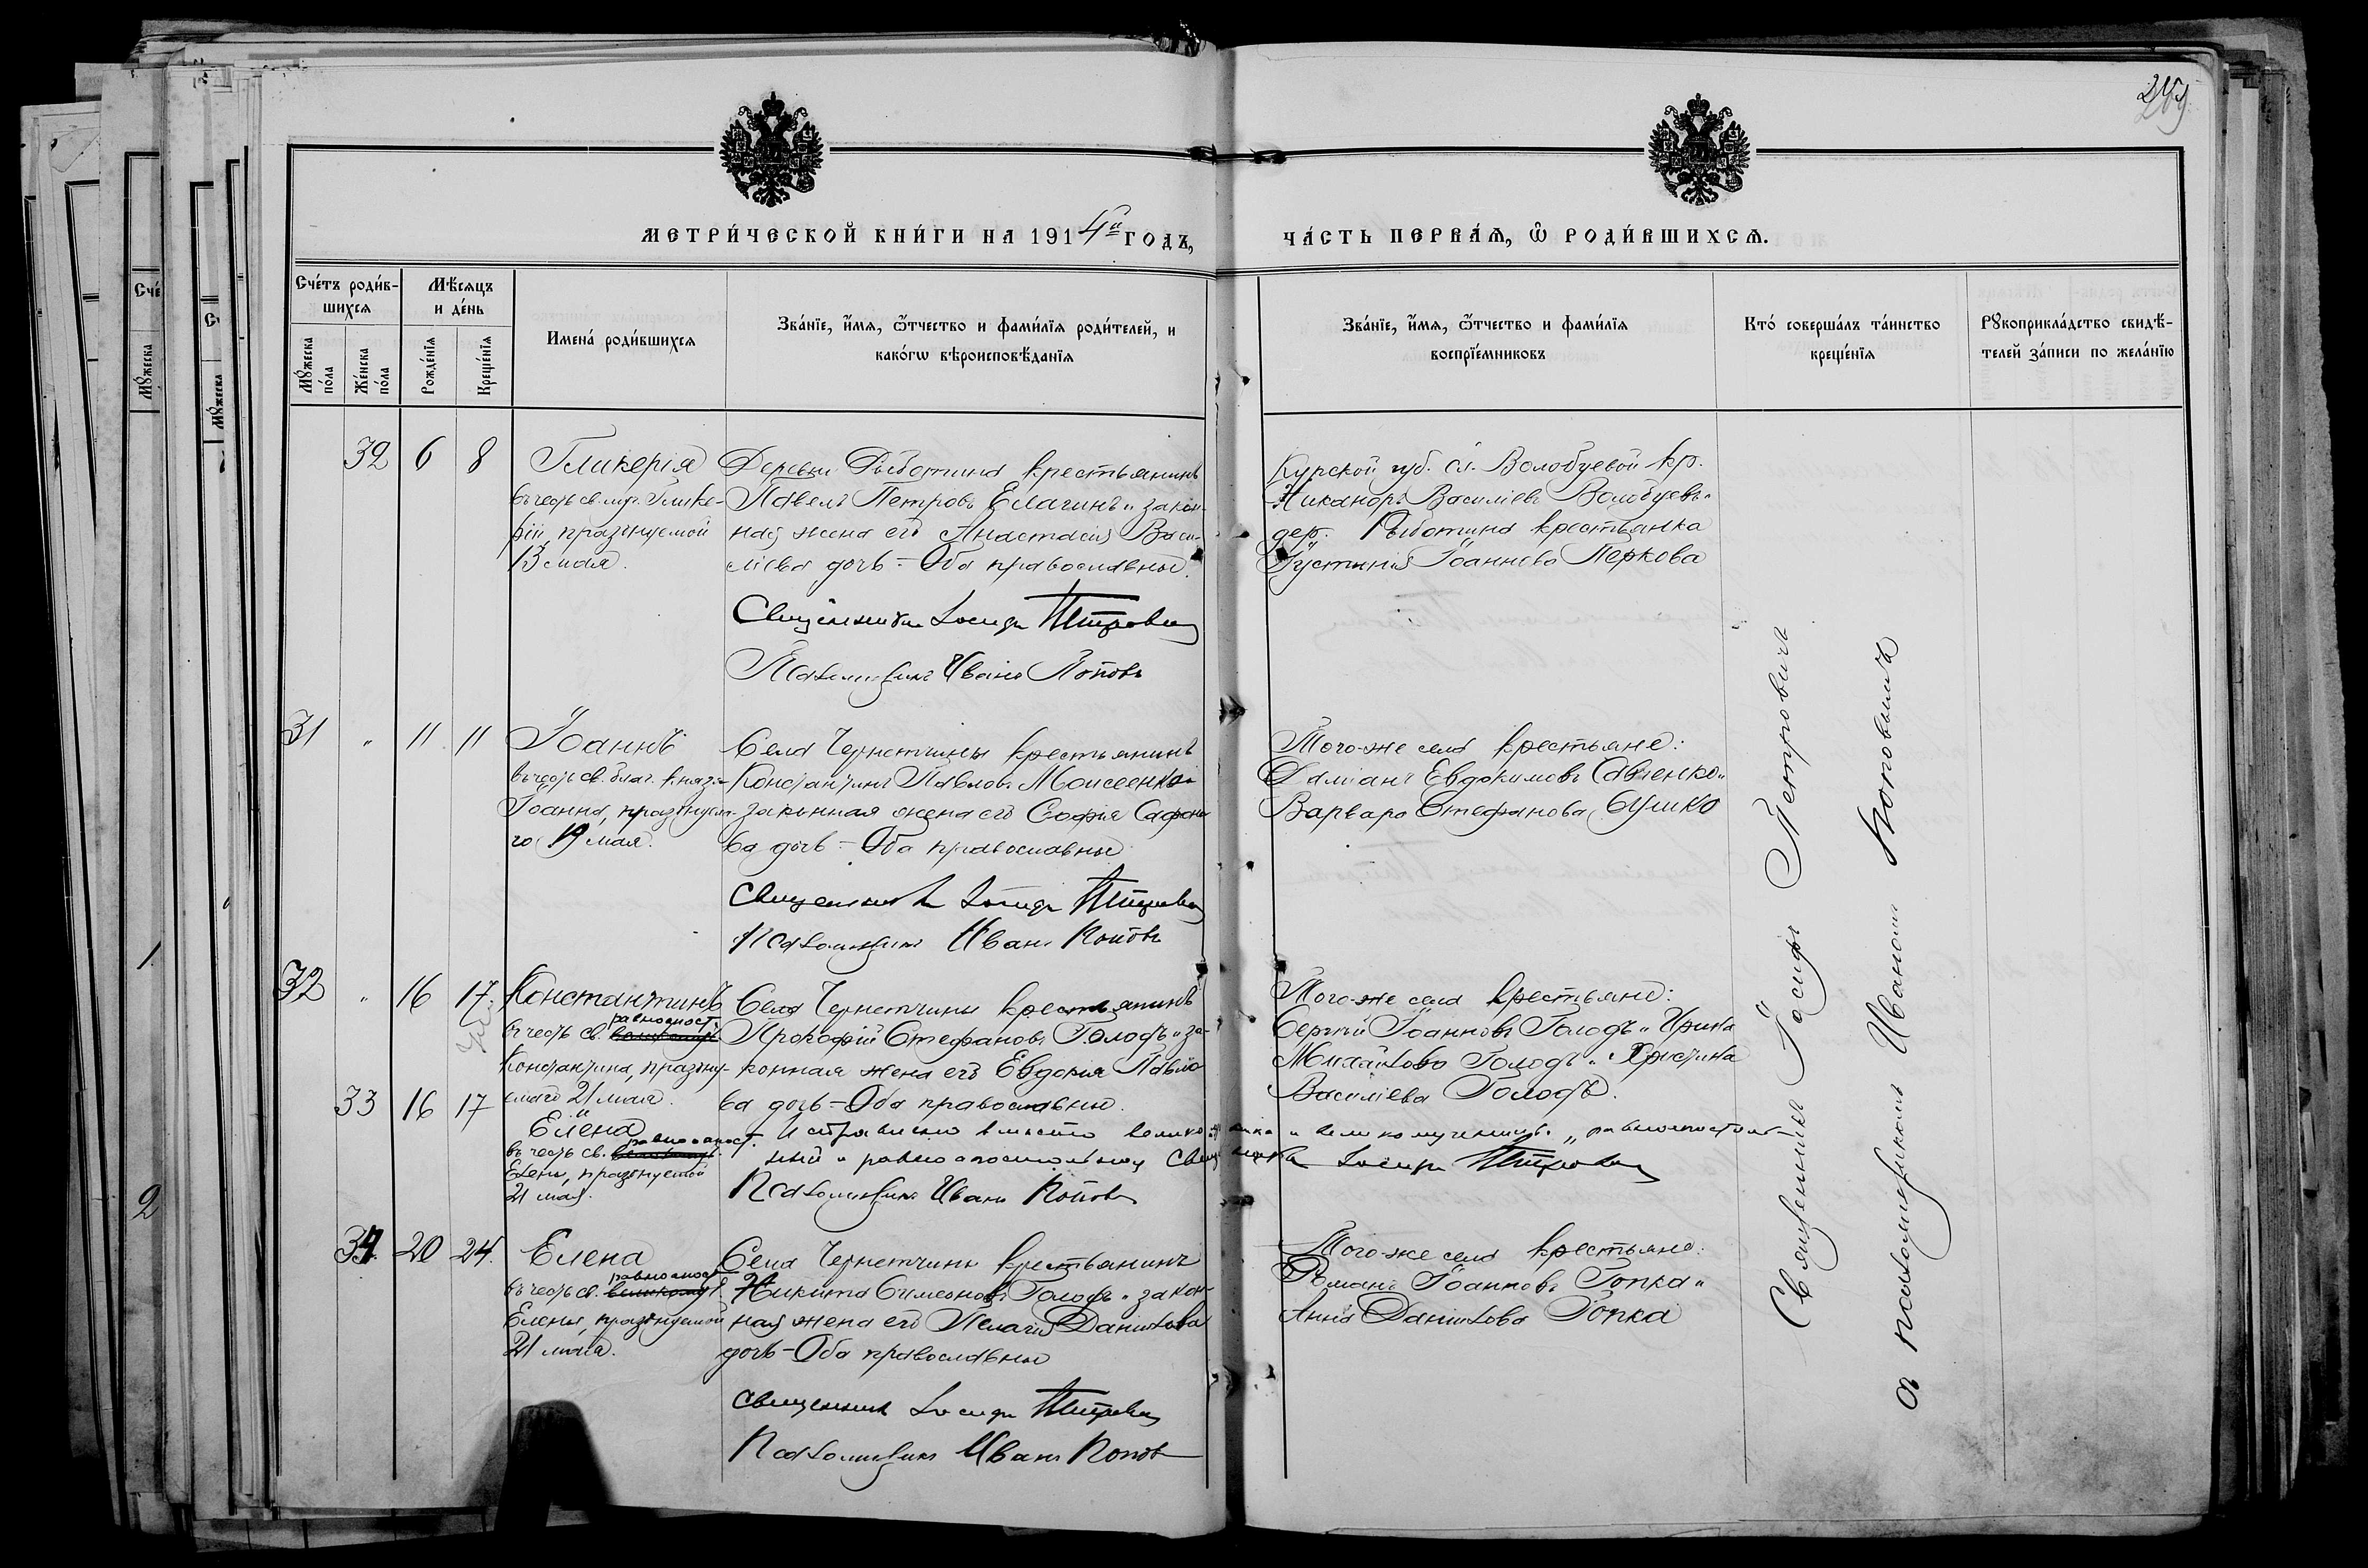 259
МЕТРИ́ЧЕСКОЙ КНИ́ГИ НА 1914й ГОДЪ,
ЧА́СТЬ ПЕРВА́Ѧ, Ѡ҆ РОДИ́ВШИХСѦ.
Сче́тъ роди́в-
шихсѧ
Мѣ́сѧцъ
и де́нь
Имена́ роди́вшихсѧ
Зва́нїе, и҆́мѧ, ѻ҆́тчество и фами́лїѧ роди́телей, и
како́гѡ вѣроисповѣ́данїѧ
Зва́нїе, и҆́мѧ, ѻ҆́тчество и фами́лїѧ
воспрїе́мниковъ
Кто́ соверша́лъ та́инство
креще́нїѧ
Рꙋкоприкла́дство свидѣ́-
телей за́писи по жела́нїю
Мꙋ́жеска
по́ла
Же́нска
по́ла
Рожде́нїѧ
Креще́нїѧ
32 6 8 Гликерія
въ честь св. муч. Глике-
ріи, празднуемой
13 мая.
Деревни Рыботина крестьянинъ
Павелъ Петровъ Елагинъ и закон-
ная жена его Анастасія Васи-
ліева дочь - Оба православные.
Священникъ Іосифъ Петровичъ
Псаломщикъ Иванъ Поповъ
Курской губ. сл. Волобуевой кр.
Никаноръ Василіевъ Волобуевъ и
дер. Рыботина крестьянка
Іустинія Іоаннова Перкова
31 " 11 11 Іоаннъ
въ честь св. благ. князя
Іоанна, празднуема-
го 19 мая.
Села Чернетчины крестьянинъ
Константинъ Павловъ Моисеенко и
законная жена его Софія Сафоно-
ва дочь - Оба православные
Священникъ Іосифъ Петровичъ
Псаломщикъ Иванъ Поповъ
Того-же села крестьяне:
Даміанъ Евдокимовъ Савченко и
Варвара Стефанова Сушко
32 " 16 17. Константинъ
равноапост.
въ честь св.
Константина, праздну-
емаго 21 мая.
Села Чернетчины крестьянинъ
Прокофій Стефановъ Голодъ и за-
конная жена его Евдокія Павло-
ва дочь - Оба православные.
Того-же села крестьяне:
Сергій Іоанновъ Голодъ и Ирина
Михайлова Голодъ и Христина
Василіева Голодъ.
33 16 17
Елена
равноапост.
въ честь св.
Елены, празднуемой
21 мая.
Исправлено вмѣсто великомученика и великомученицы „равноапостоль-
ный и равноапостольную Священникъ Іосифъ Петровичъ
Псаломщикъ Иванъ Поповъ
34. 20 24. Елена
равноапост.
въ честь св. великомуч.
Елены, празднуемой
21 мая.
Села Чернетчины крестьянинъ
Никита Симеоновъ Голодъ и закон-
ная жена его Пелагія Даніилова
дочь - Оба православные
Священникъ Іосифъ Петровичъ
Псаломщикъ Иванъ Поповъ
Того-же села крестьяне:
Романъ Іоанновъ Гопка и
Анна Даніилова Гопка
Священникъ Іосифъ Петровичъ
съ псаломщикомъ Иваномъ Поповымъ
Сче
Мꙋ́жеска
1.
2